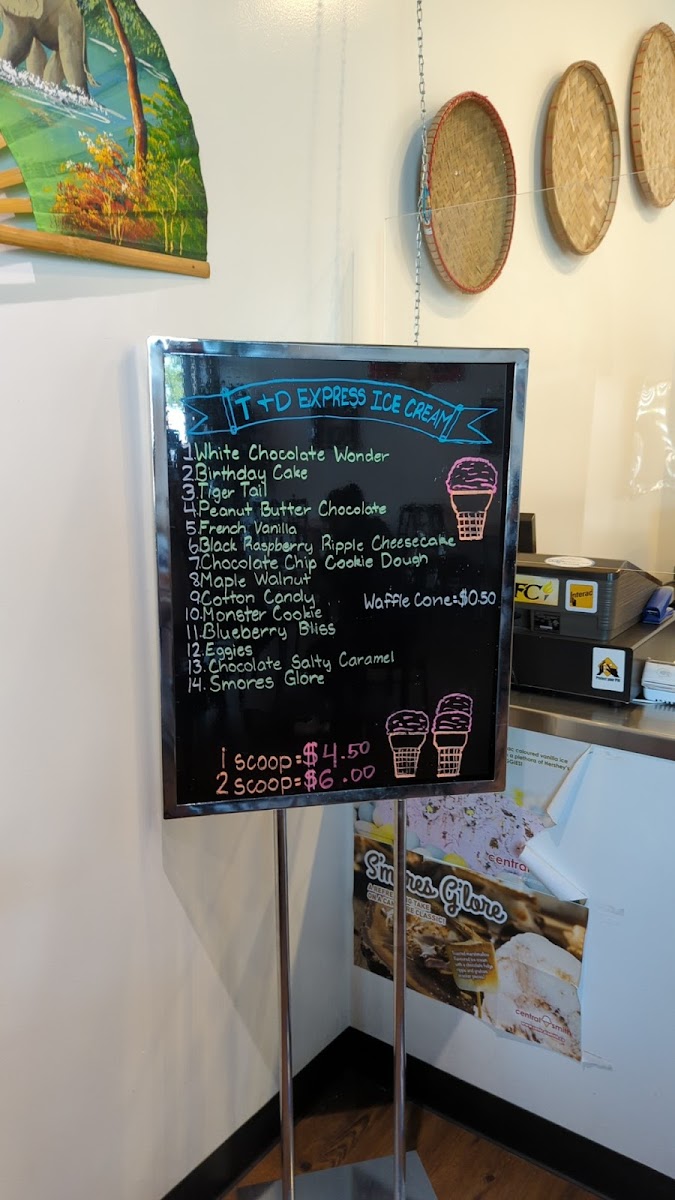 T+D EXPRESS ICE CREAM
1.White Chocolate Wonder
2.Birthday Cake
3.Tiger Tail
4.Peanut Butter Chocolate
5.French Vanilla
6.Black Raspberry Ripple Cheesecake
7.Chocolate Chip Cookie Dough
8.Maple Walnut
9.Cotton Candy
Waffle Cone=$0.50
10.Monster Cookie
11.Blueberry Bliss
12.Eggies
13.Chocolate Salty Caramel
14.Smores Glore
1 scoop=$4.50
2 scoop=$6.00
FC
Interac
coloured vanilla ice
a plethora of Hershey's
central
S'mores G'lore
central smith